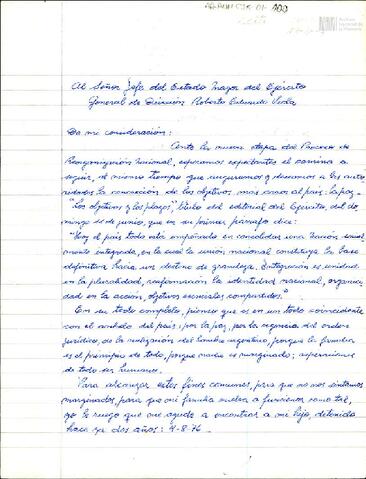 Al Señor Jefe del Estado Mayor del Ejército
General de División Roberto Eduardo Viola
De mi consideración:
Ante la nueva etapa del Proceso de
Reorganización Nacional, esperamos expectantes el camino a
seguir, al mismo tiempo que auguramos y deseamos a las auto
ridades la concreción de los objetivos, mas caros al país: la paz.
"Los objetivos y los plazos", título del editorial del Ejército, del do
mingo de junio, que en su primer párrafo dice:
"Hoy el país todo está empeñado en consolidar una Nación social
mente integrada, en la cual la unión nacional constituya la base
definitiva hacia un destino de grandeza. Integración es unidad
en la pluralidad, reafirmación de la identidad nacional, organici
dad en la acción, objetivos esenciales compartidos."
En su texto completo, pienso que es en un todo coincidente
con el anhelo del país, por la paz, por la vigencia del orden
jurídico, de la realización del hombre argentino, porque la familia
es el principio de todo, porque nadie es marginado; aspiraciones
de todo ser humano.
Para alcanzar estos fines comunes, para que no nos sintamos
marginados, para que mi familia vuelva a funcionar como tal,
yo le ruego que me ayude a encontrar a mi hijo, detenido
hace ya dos años: 4-8-76.